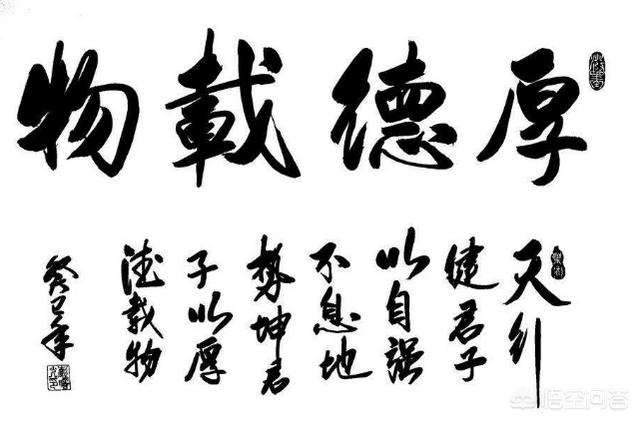 厚德載物
天行
健君子
以自强
不息地
勢坤君
子以厚
德載物
癸巳年
悟空问答